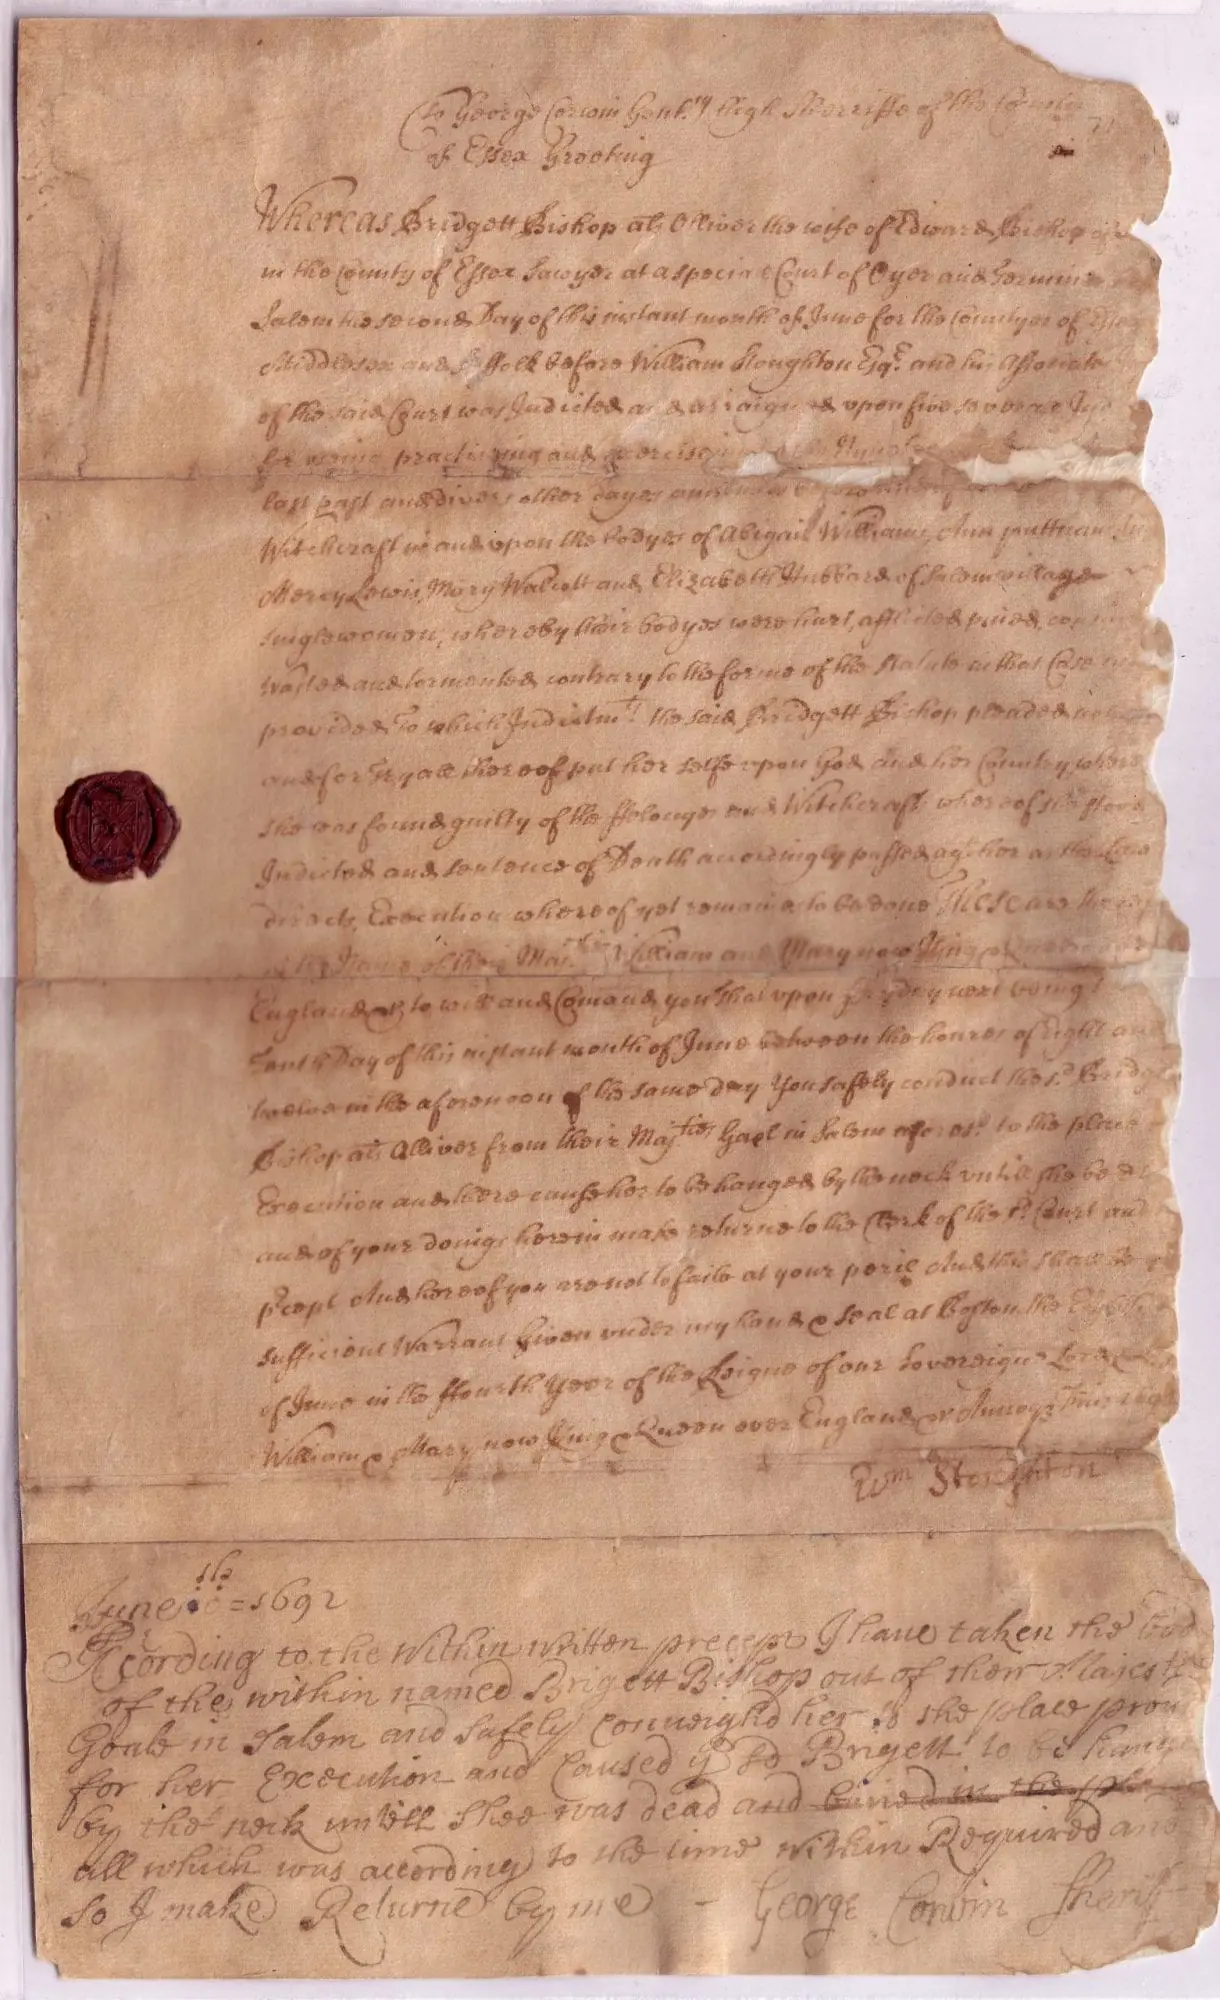 To George Corwin Gentm high Sherriffe of the County
of Essex Greeting
Whereas Bridgett Bishop als Olliver the wife of Edward Bishop of
in the County of Essex Sawyer at a speciall Court of Oyer and Termin
Salem the second Day of this instant month of June for the Countyes of Essex
Middlesex and Suffolk before William Stoughton Esqr. and his Associate
of the said Court was Indicted and arraigned upon five severall Ind
for useing practiseing and exerciseing
last past and divers other dayes
Witchcraft in and upon the bodyes of Abigail Williams, Ann puttnam
Mercy Lewis, Mary Walcott and Elizabeth Hubbard of Salem village
singlewomen, whereby their bodyes were hurt, afflicted pined, con
wasted and tormented contrary to the forme of the Statute in that Case
provided To which Indictmts the said Bridgett Bishop pleaded no
and for Tryall thereof put her selfe upon God and her Country, where
she was found guilty of the ffelonyes and Witchcrafts whereof she stood
Indicted and sentence of Death accordingly passed agt her as the Law
directs, Execution whereof yet remaines to be done These are there
in the Name of their Majties William and Mary now King & Queen over
England &c to will and Comand you That upon fryday next being
Tenth Day of this instant month of June between the houres of Eight and
twelve in the aforenoon of the same day You safely conduct the sd Bridg
Bishop als Olliver from their Majties Gaol in Salem aforesd to the place
Execution and there cause her to be hanged by the neck untill she be de
and of your doings herein make returne to the Clerk of the sd Court and
pcept And hereof you are not to faile at your peril And this shall be
sufficient Warrant Given under my hand & seal at Boston the Eighth
of June in the ffourth Year of the Reigne of our Sovereigne Lord &
William & Mary now King & Queen over England &c Annoqe
Wm Stoughton
June 10th = 1692
According to the Within Written precept I have taken the bod
of the within named Brigett Bishop out of their Majesties
Goale in Salem and Safely Conveighd her to the place prou
for her Execution and Caused ye sd Brigett to be hange
by the neck untill Shee was dead and buried in the
all which was according to the time within Required and
So I make Returne by me - George Corwin Sheriff